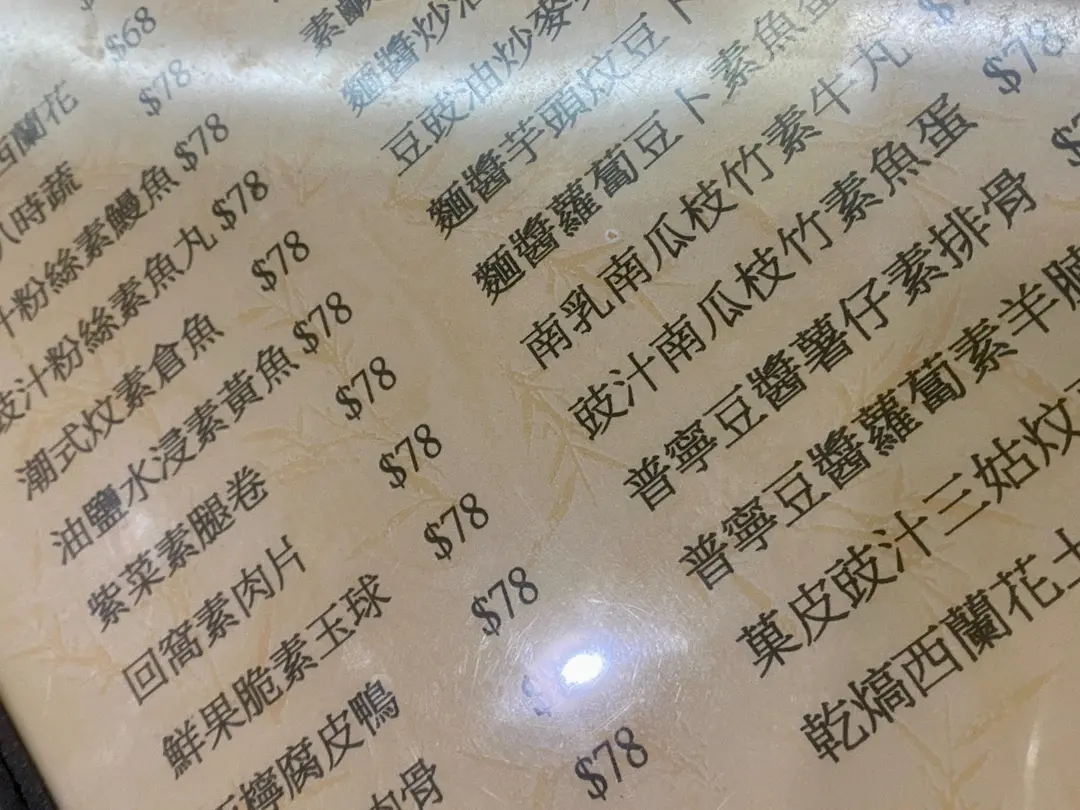 $68
西蘭花 $78
時蔬 $78
汁粉絲素鰻魚 $78
豉汁粉絲素魚丸 $78
潮式炆素倉魚 $78
油鹽水浸素黃魚 $78
紫菜素腿卷 $78
回窩素肉片 $78
鮮果脆素玉球 $78
檸腐皮鴨
肉骨 $78
素鹹
麵醬炒
豆豉油炒麥
麵醬芋頭炆豆卜
麵醬蘿蔔豆卜素魚蛋
南乳南瓜枝竹素牛丸 $78
豉汁南瓜枝竹素魚蛋
普寧豆醬薯仔素排骨
普寧豆醬蘿蔔素羊腩
菓皮豉汁三姑炆
乾熇西蘭花